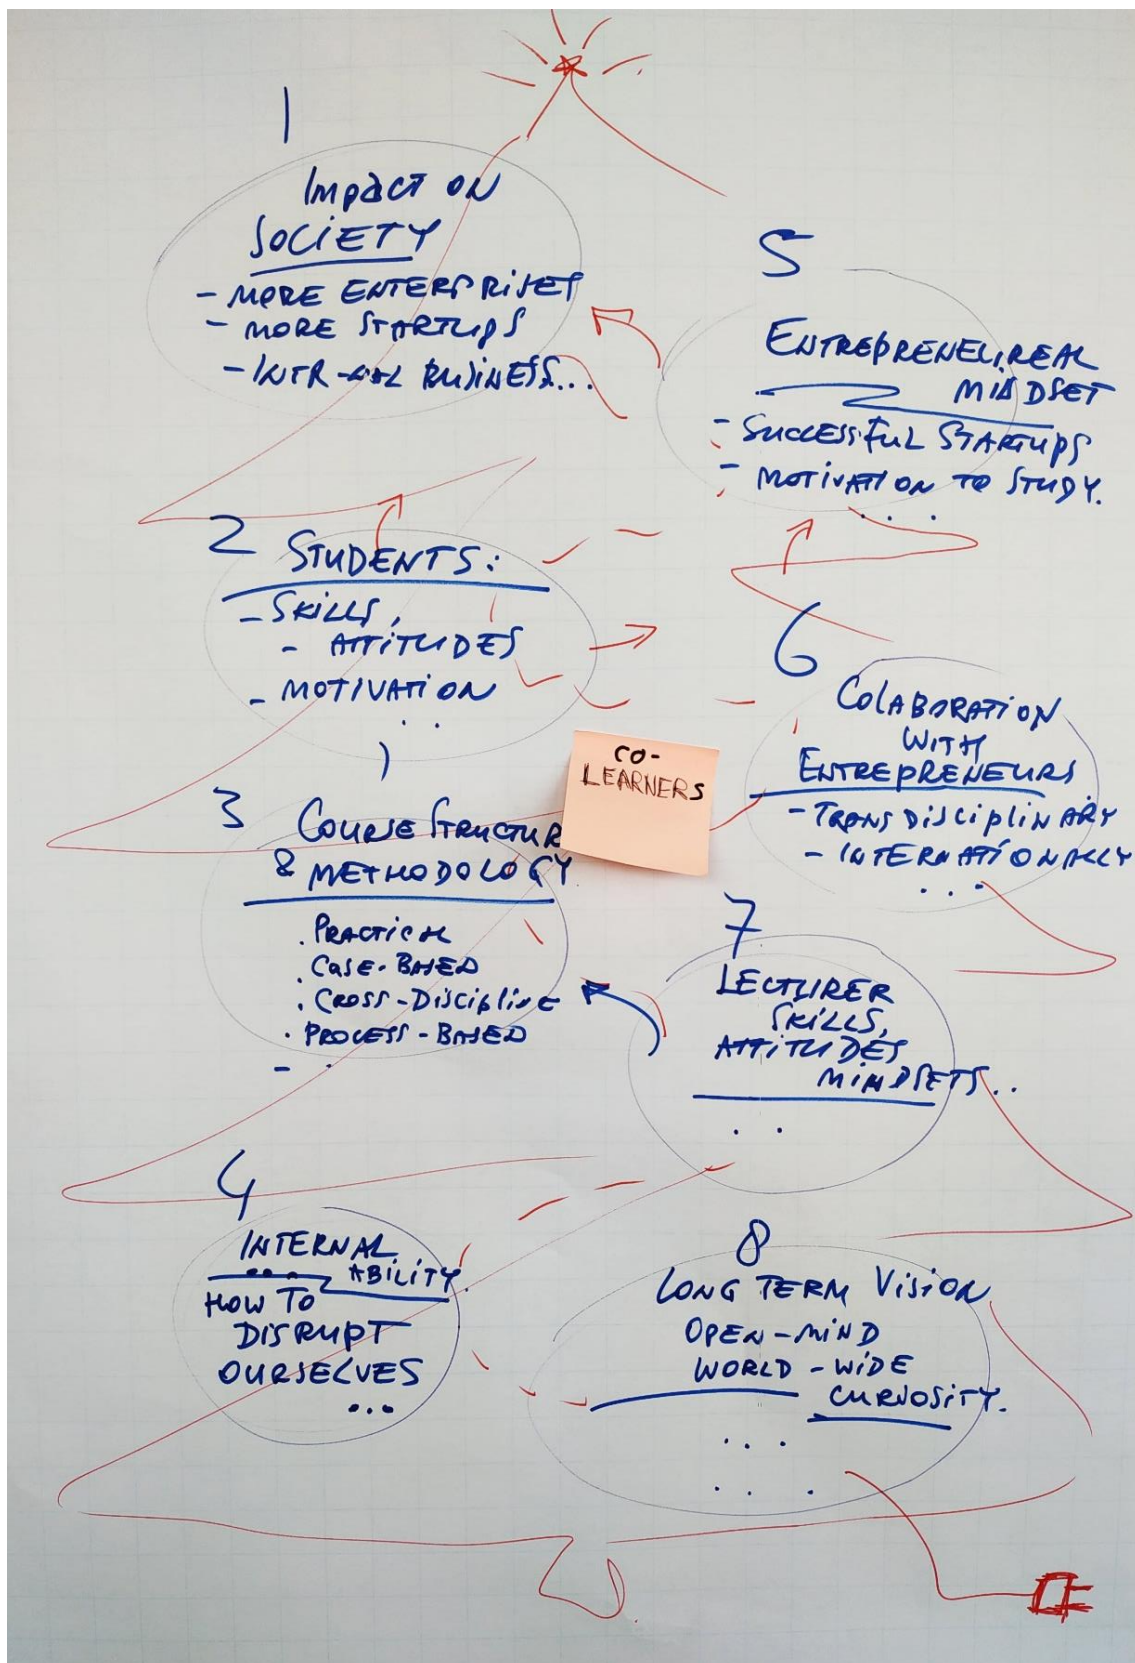 1
Impact on
SOCIETY
- MORE ENTERPRISES
- MORE STARTUPS
- BUSINESS...
5
ENTREPRENEUREAL
MINDSET
- SUCCESSFUL STARTUPS
- MOTIVATION TO STUDY.
. . .
2 STUDENTS:
- SKILLS,
- ATTITUDES
- MOTIVATION
. .
6
COLABORATION
WITH
ENTREPRENEURS
- TRANSDISCIPLINARY
- INTERNATIONALLY
. . .
CO-
LEARNERS
3 COURSE STRUCTUR
& METHODOLOGY
. PRACTICAL
. CASE-BASED
. CROSS-DISCIPLINE
. PROCESS-BASED
- .
7
LECTURER
SKILLS,
ATTITUDES
MINDSETS..
. .
4
INTERNAL
... ABILITY.
HOW TO
DISRUPT
OURSELVES
...
8
LONG TERM VISION
OPEN-MIND
WORLD-WIDE
CURIOSITY.
. . .
. . .